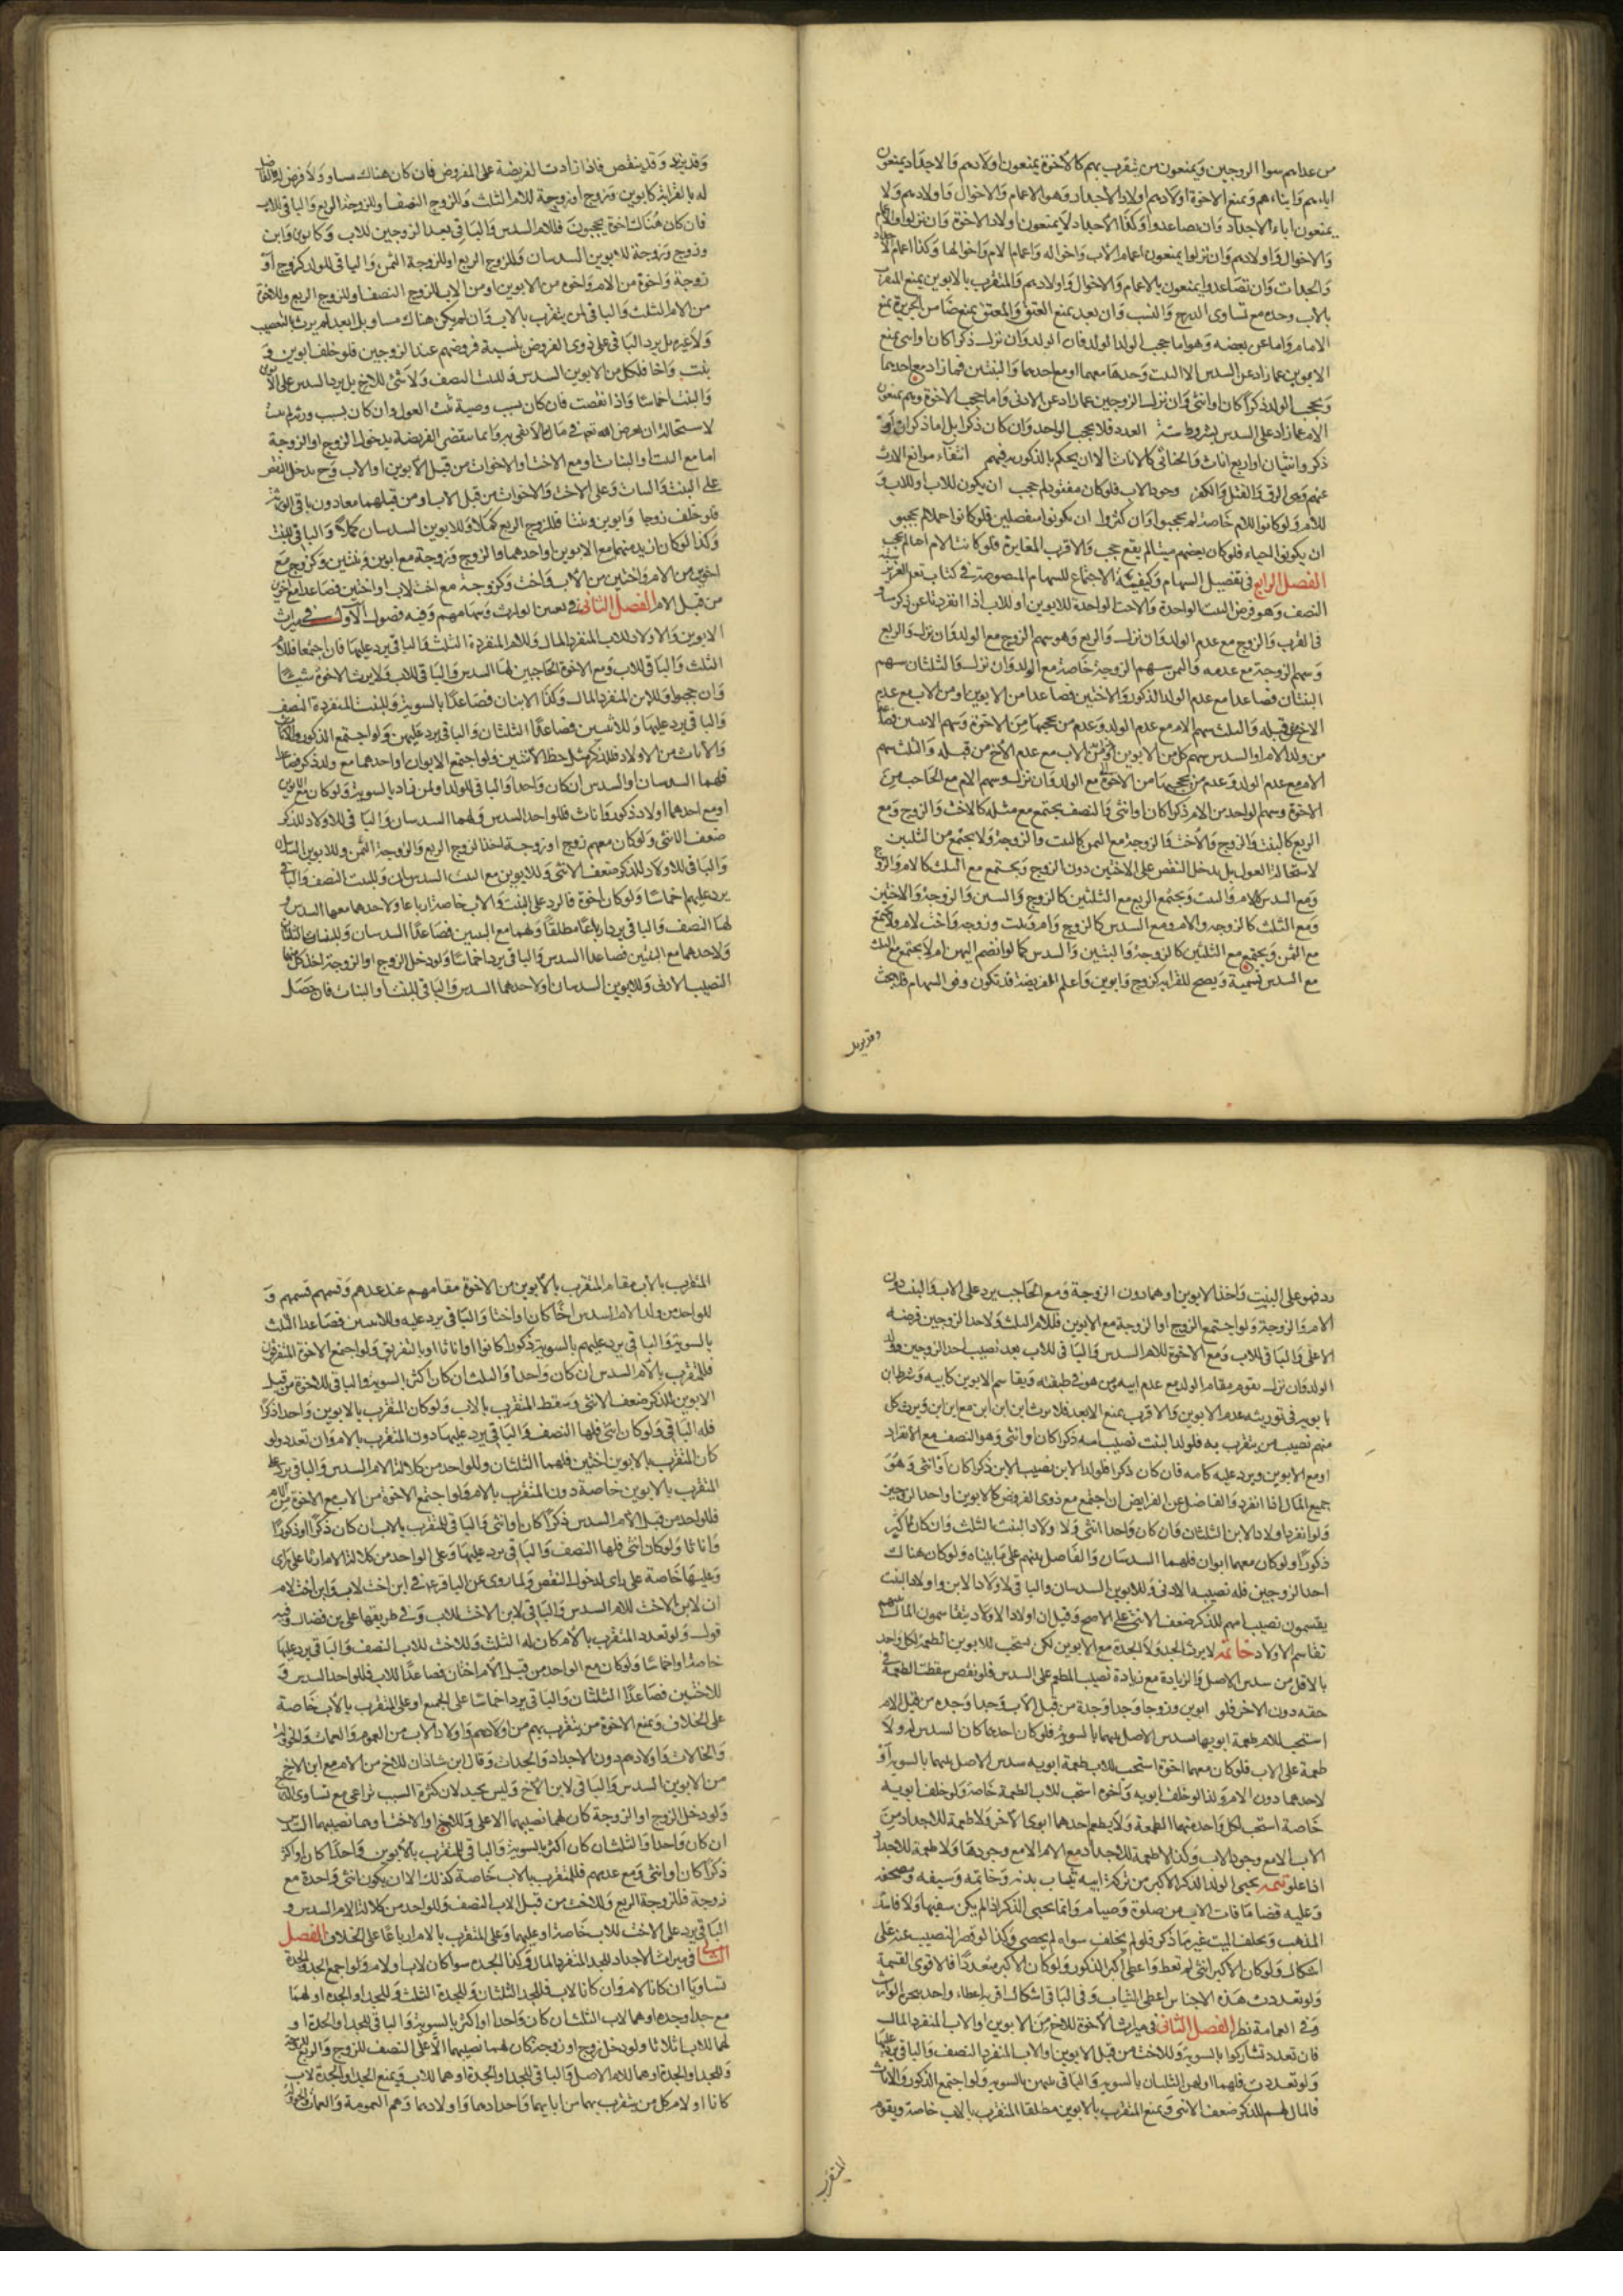 من عداهم سوا الزوجين ويمنعون من يتقرب بهم كالاخوة يمنعون اولادهم والاجداد يمنعون
اباءهم وابناءهم ويمنع الاخوة اولادهم اولاد الاجداد وهو الاعمام والاخوال واولادهم ولا
يمنعون اباء الاجداد وان تصاعدوا وكذا الاجداد لا يمنعون اولاد الاخوة وان نزلوا والاعمام
والاخوال واولادهم وان نزلوا يمنعون اعمام الاب واخواله واعمام الام واخوالها وكذا اعمام الاجداد
والجدات وان تصاعدوا يمنعون بالاعمام والاخوال واولادهم والمتقرب بالابوين يمنع المتقرب
بالاب وحده مع تساوى الدرج والنسب وان بعد يمنع المعتق والمعتق يمنع ضامن الجريرة يمنع
الامام واما عن بعضه وهو اما حجب الولد الولد فان الولد وان نزل ذكرا كان او انثى يمنع
الابوين عما زاد عن السدس الا البنت وحدها معهما او مع احدهما والبنتين فما زاد مع احدهما
ويحجب الولد ذكرا كان او انثى وان نزل الزوجين عما زاد عن الادنى واما حجب الاخوة وهم يمنعون
الام عما زاد على السدس بشروط ستة العدد فلا يحجب الواحد وان كان ذكرا بل اما ذكران او
ذكر وانثيان او اربع اناث والخناثى كالاناث الا ان يحكم بالذكورية فيهم انتفاء موانع الارث
عنهم وهى الرق والقتل والكفر وجود الاب فلو كان مفقودا لم حجب ان يكون للاب او للاب و
للام ولو كانوا للام خاصة لم يحجبوا وان كثروا ان يكونوا منفصلين فلو كانوا حملا لم يحجبو
ان يكونوا احياء فلو كان بعضهم ميتا لم يقع حجب والاقرب المغايرة فلو كانت الام اخا لم يحجب
الفصل الرابع فى تفصيل السهام وكيفية الاجتماع للسهام المنصوصة فى كتاب الله العزيز ستة
النصف وهو فرض البنت الواحدة والاخت الواحدة للابوين او للاب اذا انفردتا عن ذكر مساو
فى القرب والزوج مع عدم الولد وان نزل والربع وهو سهم الزوج مع الولد وان نزل والربع
وسهم الزوجة مع عدمه والثمن سهم الزوجة خاصة مع الولد وان نزل والثلثان سهم
البنتان فصاعدا مع عدم الولد الذكور والاختين فصاعدا من الابوين او من الاب مع عدم
الاخ من قبله والثلث سهم الام مع عدم الولد وعدم من يحجبها من الاخوة وسهم الاثنين فصاعدا
من ولد الام والسدس سهم كل من الابوين مع الاب مع عدم الاخ من قبله والثلث سهم
الام مع عدم الولد وعدم من يحجبها من الاخوة مع الولد وان نزل وسهم الام مع الحاجب من
الاخوة وسهم الواحد من الام ذكرا كان او انثى والنصف يجتمع مع مثله كالاخت والزوج ومع
الربع كالبنت والزوج والاخت والزوجة مع الثمن كالبنت والزوجة ولا يجتمع من الثلثين
لاستحالة العول بل يدخل النقص على الاختين دون الزوج ويجتمع مع الثلث كالام والزوج
ومع السدس كالام والبنت ويجتمع الربع مع الثلثين كالزوج والبنتين والزوجة والاختين
ومع الثلث كالزوجة والام ومع السدس كالزوج وام وبنت وزوجة واخت لام ولا يجتمع
مع الثمن ويجتمع مع الثلثين كالزوجة والبنتين والسدس كما لو انضم اليهن ام لا يجتمع مع الثلث
مع السدس تسمية ويصح للقرابة كزوج وابوين واعلم ان الفريضة قد تكون وفق السهام فلا بحث
وقد يزيد
وقد يزيد وقد ينقص فاذا زادت الفريضة على المفروض فان كان هناك مساو ولا فرض له فالفاضل
له بالقرابة كابوين وزوج او زوجة للام الثلث وللزوج النصف وللزوجة الربع والباقى للاب
فان كان هناك اخوة يحجبون فللام السدس والباقى بعد الزوجين للاب وكابوى وابن
وزوج وزوجة للابوين السدسان وللزوج الربع او للزوجة الثمن والباقى للولد كزوج او
زوجة واخوة من الام واخوه من الابوين او من الاب للزوج النصف وللزوج الربع وللاخوة
من الام الثلث والباقى لمن يتقرب بالاب وان لم يكن هناك مساو بل ابعد لم يرث بالتعصيب
ولا غيره بل يرد الباقى على ذوى الفروض بنسبة فروضهم عند الزوجين فلو خلف ابوين و
بنت واخا فلكل من الابوين السدس وللبنت النصف ولا شئ للاخ بل يرد السدس على الابوين
والبنت اخماسا واذا نقصت فان كان بسبب وصية العول وان كان بسبب ورثة لم يثبت
لاستحالة ان يفرض الله تعالى فى مال ما لا يفى به وانما ينقص الفريضة بدخول الزوج او الزوجة
اما مع البنت او البنات او مع الاخت والاخوات من قبل الابوين او الاب وح يدخل النقص
على البنت والبنات وعلى الاخت والاخوات من قبل الاب او من قبلهما معا دون باقى الورثة
فلو خلف زوجا وابوين وبنتا فللزوج الربع كملا وللابوين السدسان كملا والباقى للبنت
وكذا لو كان ازيد منهما مع الابوين او احدهما والزوج وزوجة مع ابوين وبنتين وكزوج مع
اخوين من الام واختين من الاب واخت وكزوجة مع اخت لاب او اختين فصاعدا مع اخرى
من قبل الام الفصل الثانى فى تعيين الوارث وسهامهم وفيه فصول الاول فى ميراث
الابوين والاولاد للاب المنفرد المال وللام المنفردة الثلث والباقى يرد عليها فان اجتمعا فللام
الثلث والباقى للاب ومع الاخوة الحاجبين لها السدس والباقى للاب ولا يرث الاخوة شيئا
وان حجبوا وللابن المنفرد المال وكذا الابنان فصاعدا بالسوية وللبنت المنفردة النصف
والباقى يرد عليها وللاثنين فصاعدا الثلثان والباقى يرد عليهن ولو اجتمع الذكور والاناث
والاناث من الاولاد فللذكر مثل حظ الانثيين ولو اجتمع الابوان او احدهما مع ولد ذكر فصاعدا
فلهما السدسان والسدس ان كان واحدا والباقى للولد او لمن زاد بالسوية ولو كان مع الابوين
او مع احدهما اولاد ذكور واناث فللواحد السدس ولهما السدسان والباقى للاولاد للذكر
ضعف الانثى ولو كان معهم زوج او زوجة اخذ الزوج الربع والزوجة الثمن وللابوين السدسان
والباقى للاولاد للذكر ضعف الانثى وللابوين مع البنت السدسان وللبنت النصف والباقى
يرد عليهم اخماسا ولو كان اخوة فالرد على البنت والاب خاصة ارباعا ولاحدهما معها السدس و
لها النصف والباقى يرد ارباعا مطلقا ولهما مع البنتين فصاعدا السدسان وللبنتان الثلثان
ولاحدهما مع البنتين فصاعدا السدس والباقى يرد اخماسا ولو دخل الزوج او الزوجة اخذ كل منهما
النصيب الادنى وللابوين السدسان او لاحدهما السدس والباقى للبنت او البنات فان حصل
رد فهو على البنت واخذ الابوين او هما دون الزوجة ومع الحاجب يرد على الاب والبنت دون
الام والزوجة ولو اجتمع الزوج او الزوجة مع الابوين فللام الثلث ولاحد الزوجين فرضه
الاعلى والباقى للاب ومع الاخوة للام السدس والباقى للاب بعد نصيب احد الزوجين وولد
الولد وان نزل يقوم مقام الولد مع عدم ابيه ومن هو فى طبقته ويقاسم الابوين كابيه وشرط ابن
بابويه فى توريثه عدم الابوين والاقرب يمنع الابعد فلا يرث ابن ابن ابن مع ابن ابن ويرث كل
منهم نصيب من يتقرب به فلولد البنت نصيب امه ذكرا كان او انثى وهو النصف مع الانفراد
او مع الابوين ويرد عليه كامه فان كان ذكرا فلولد الابن نصيب الابن ذكرا كان او انثى وهو
جميع المال اذا انفرد والفاضل عن الفرايض ان اجتمع مع ذوى الفروض كالابوين او احد الزوجين
ولو انفرد اولاد الابن الثلثان وان كان واحدا انثى ولا اولاد البنت الثلث وان كان اكثر
ذكورا ولو كان معهما ابوان فلهما السدسان والفاضل بينهم على ما بيناه ولو كان هناك
احد الزوجين فله نصيبه الادنى وللابوين السدسان والباقى لاولاد الابن واولاد البنت
يقتسمون نصيب امهم للذكر ضعف الانثى على الاصح وقيل ان اولاد الاولاد يتقاسمون المال بينهم
تقاسم الاولاد خاتمة لا يرث الجد ولا الجدة مع الابوين لكن يستحب للابوين الطعمة لكل واحد
بالاقل من سدس الاصل والزيادة مع زيادة نصيب المطعم على السدس فلو نقص سقطت الطعمة فى
حقه دون الاخر فلو ابوين وزوجا وجدا وجدة من قبل الاب وجدا وجدة من قبل الام
استحب للام طعمة ابويها سدس الاصل بينهما بالسوية فلو كان احدهما كان السدس له ولا
طعمة على الاب فلو كان معهما اخوة استحب للاب طعمة ابويه سدس الاصل بينهما بالسوية او
لاحدهما دون الام وكذا لو خلف ابويه واخوه استحب للاب الطعمة خاصة ولو خلف ابويه
خاصة استحب لكل واحد منهما الطعمة ولا يطعم احدهما ابوى الاخر ولا طعمة للاجداد من
الاب الا مع وجود الاب وكذا لا طعمة للاجداد مع الام الا مع وجودها ولا طعمة للاجداد
اذا علو تتمه يحبى الولد الذكر الاكبر من تركة ابيه بثياب بدنه وخاتمه وسيفه ومصحفه
وعليه قضا ما فات الاب من صلوة وصيام وانما يحبى الذكر اذا لم يكن سفيها ولا فاسد
المذهب ويخلف الميت غير ما ذكر فلو لم يخلف سواه لم يحص وكذا لو قصر النصيب عنه على
اشكال ولو كان الاكبر انثى لم تعط واعطى اكبر الذكور ولو كان الاكبر متعددا فالاقوى القسمة
ولو تعددت هذه الاجناس اعطى الثياب وفى الباقى اشكال اقربه اعطاء واحد بتخير الوارث
وفى العمامة نظر الفصل الثانى فى ميراث الاخوة للاخ من الابوين او الاب المنفرد المال
فان تعدد تشاركوا بالسوية وللاخت من قبل الابوين او الاب المنفرد النصف والباقى يرد عليها
ولو تعددت فلهما او لهن الثلثان بالسوية والباقى عليهن بالسوية ولو اجتمع الذكور والاناث
فالمال لهم للذكر ضعف الانثى ويمنع المتقرب بالابوين مطلقا المتقرب بالاب خاصة ويقوم
المتقرب
المتقرب بالاب مقام المتقرب بالابوين من الاخوة مقامهم عند عدمهم وقسمهم قسمهم و
للواحد من ولد الام السدس اخا كان او اختا والباقى يرد عليه وللاثنين فصاعدا الثلث
بالسوية والباقى يرد عليهم بالسوية ذكورا كانوا او اناثا او بالتفريق ولو اجتمع الاخوة المتفرقون
فللمتقرب بالام السدس ان كان واحدا والثلث ان كان اكثر بالسوية والباقى للاخوة من قبل
الابوين للذكر ضعف الانثى وسقط المتقرب بالاب ولو كان المتقرب بالابوين واحدا ذكرا
فله الباقى ولو كان انثى فلها النصف والباقى يرد عليها دون المتقرب بالام وان تعدد ولو
كان المتقرب بالابوين اختين فلهما الثلثان وللواحد من كلالة الام السدس والباقى يرد على
المتقرب بالابوين خاصة دون المتقرب بالام ولو اجتمع الاخوة من الاب مع الاخوة من الام
فللواحد من قبل الام السدس ذكرا كان او انثى والباقى للمتقرب بالاب ان كان ذكرا او ذكورا
واناثا ولو كان انثى فلها النصف والباقى يرد عليها وعلى الواحد من كلالة الام ارباعا على راى
وعليها خاصة على راى لدخول النقص ولما روى عن الباقر ع فى ابن اخت لاب وابن اخت لام
ان لابن الاخت للام السدس والباقى لابن الاخت للاب وفى طريقها على بن فضال وفيه
قول ولو تعدد المتقرب بالام كان له الثلث وللاخت للاب النصف والباقى يرد عليها
خاصة او اخماسا ولو كان مع الواحد من قبل الام اختان فصاعدا للاب فللواحد السدس و
للاختين فصاعدا الثلثان والباقى يرد اخماسا على الجميع او على المتقرب بالاب خاصة
على الخلاف ويمنع الاخوة من يتقرب بهم من اولادهم واولاد الاب من العموم والعمات والخولة
والخالات واولادهم دون الاجداد والجدات وقال ابن شاذان للاخ من الام مع ابن الاخ
من الابوين السدس والباقى لابن الاخ وليس بجيد لان كثرة السبب تراعى مع تساوى الدرج
ولو دخل الزوج او الزوجة كان لهما نصيبهما الاعلى وللاخ او الاخت او هما نصيبهما السدس
ان كان واحدا والثلث ان كان اكثر بالسوية والباقى للمتقرب بالابوين واحدا كان او اكثر
ذكرا كان او انثى ومع عدمهم فللمتقرب بالاب خاصة كذلك الا ان يكون انثى واحدة مع
زوجة فللزوجة الربع وللاخت من قبل الاب النصف وللواحد من كلالة الام السدس و
الباقى يرد على الاخت للاب خاصة او عليهما وعلى المتقرب بالام ارباعا على الخلاف الفصل
الثالث فى ميراث الاجداد للجد المنفرد المال وكذا الجده سوا كان لاب او لام ولو اجمع الجد والجدة
تساويا ان كانا لام وان كانا لاب فللجد الثلثان وللجدة الثلث وللجد او الجده او لهما
مع جد او جده او هما لاب الثلث ان كان واحدا او اكثر بالسوية والباقى للجد او الجدة او
لهما للاب اثلاثا ولو دخل زوج او زوجة كان لهما نصيبهما الاعلى النصف للزوج والربع للزوجة
وللجد او الجدة او هما للام الاصل والباقى للجد او الجدة او هما للاب ويمنع الجد او الجدة لاب
كانا او لام كل من يتقرب بهما من ابايهما واجدادهما واولادهما وهم العمومة والعمات